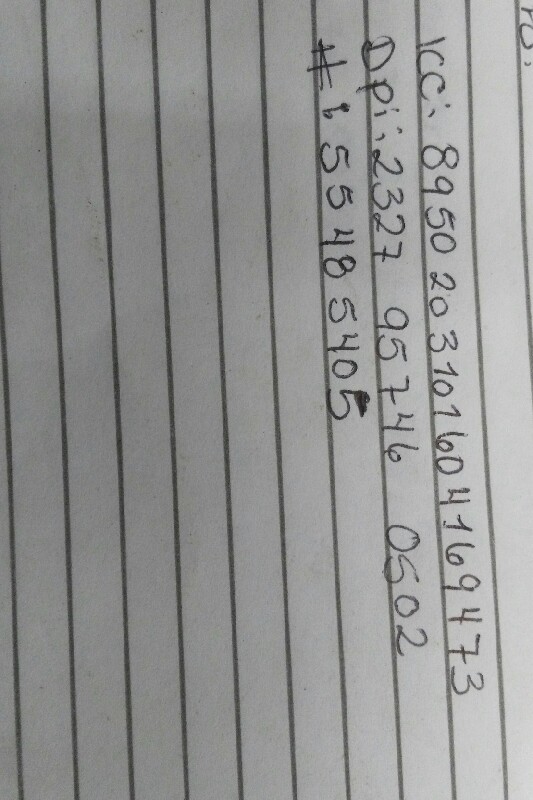 ICC: 8950203101604169473
Dpi: 2327 95746 0502
#: 55485405